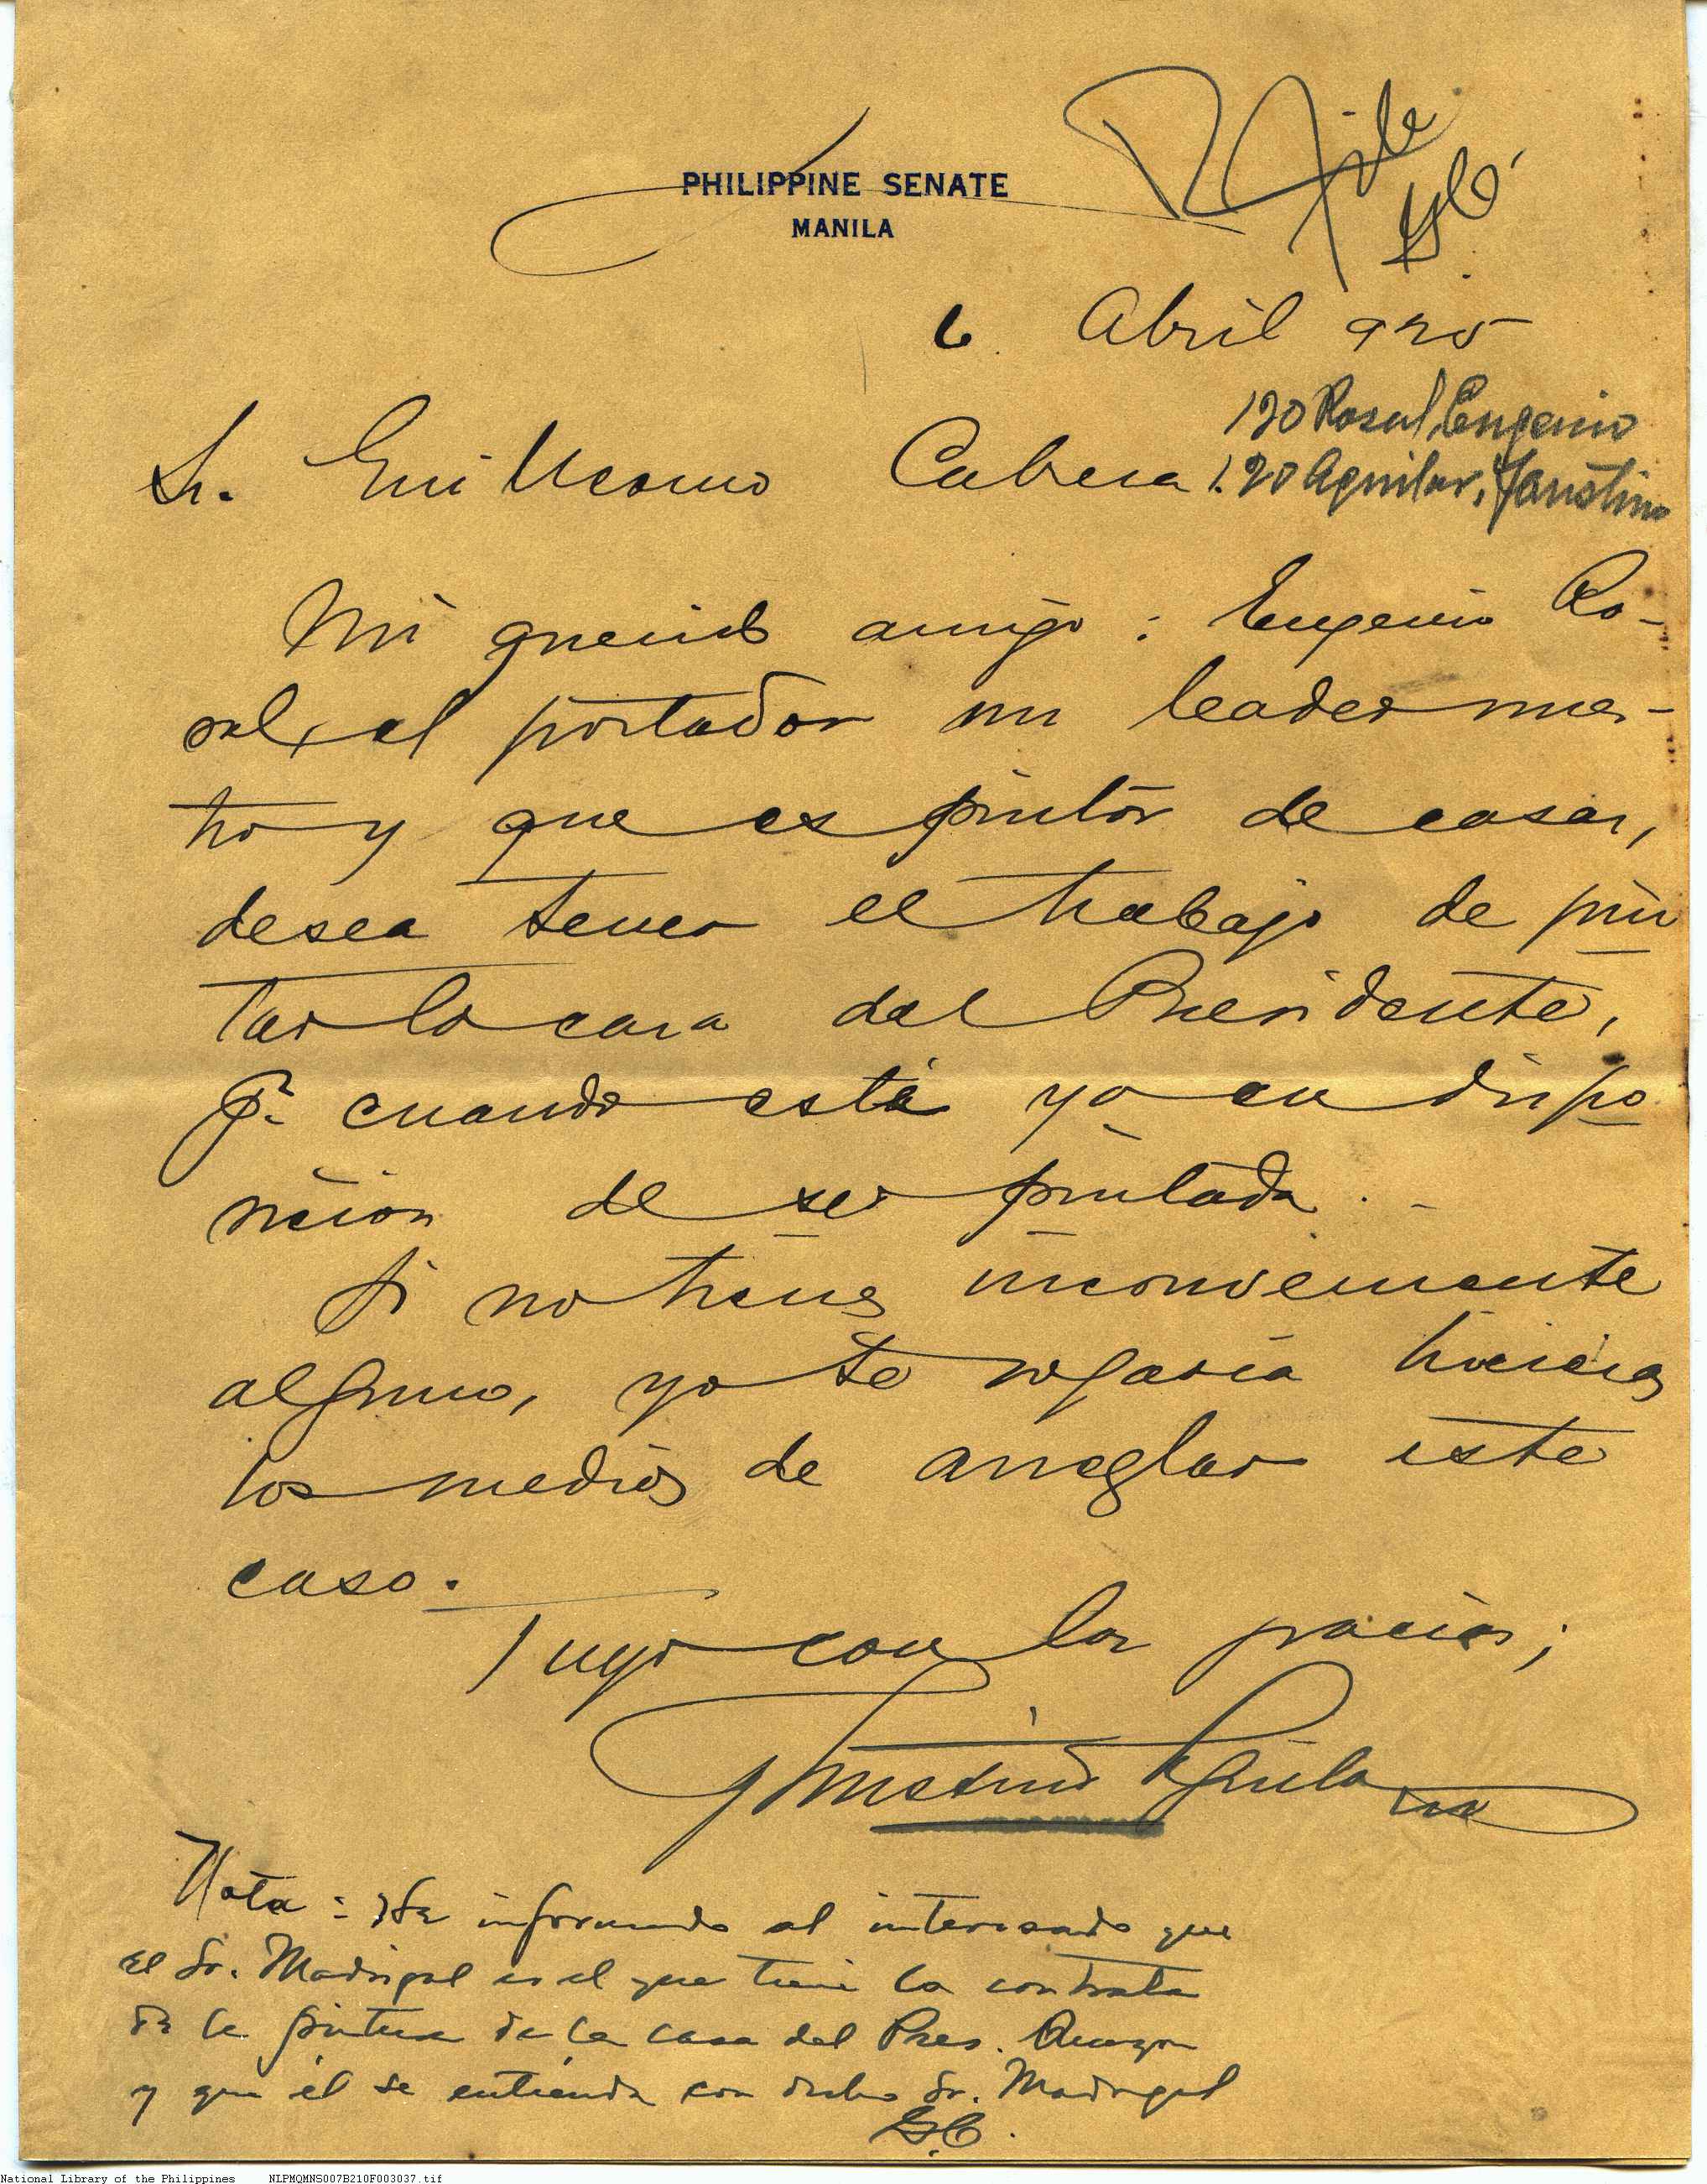 File
G.C.
PHILIPPINE SENATE
MANILA
6 Abril 925
120 Rosal, Eugenio
Sr. Guillermo Cabrera
120 Aguilar, Faustino
Mi querido amigo: Eugenio Ro-
sal, el portador un leader nues-
tro y que es pintor de casas,
desea tener el trabajo de pin
tar la casa del Presidente,
pa. cuando está ya en dispo
sición de ser pintada.-
Si no tienes inconveniente
alguno, yo te rogaría hicieras
los medios de arreglar este
caso.
Tuyo con las gracias;
Faustino Aguilar
Nota: He informado al interesado que
el Sr. Madrigal es el que tiene la contrata
de la pintura de la casa del Pres. Quezon
y que él se entienda con dicho Sr. Madrigal
G.C.
National Library of the Philippines NLPMQMNS007B210F003037.tif